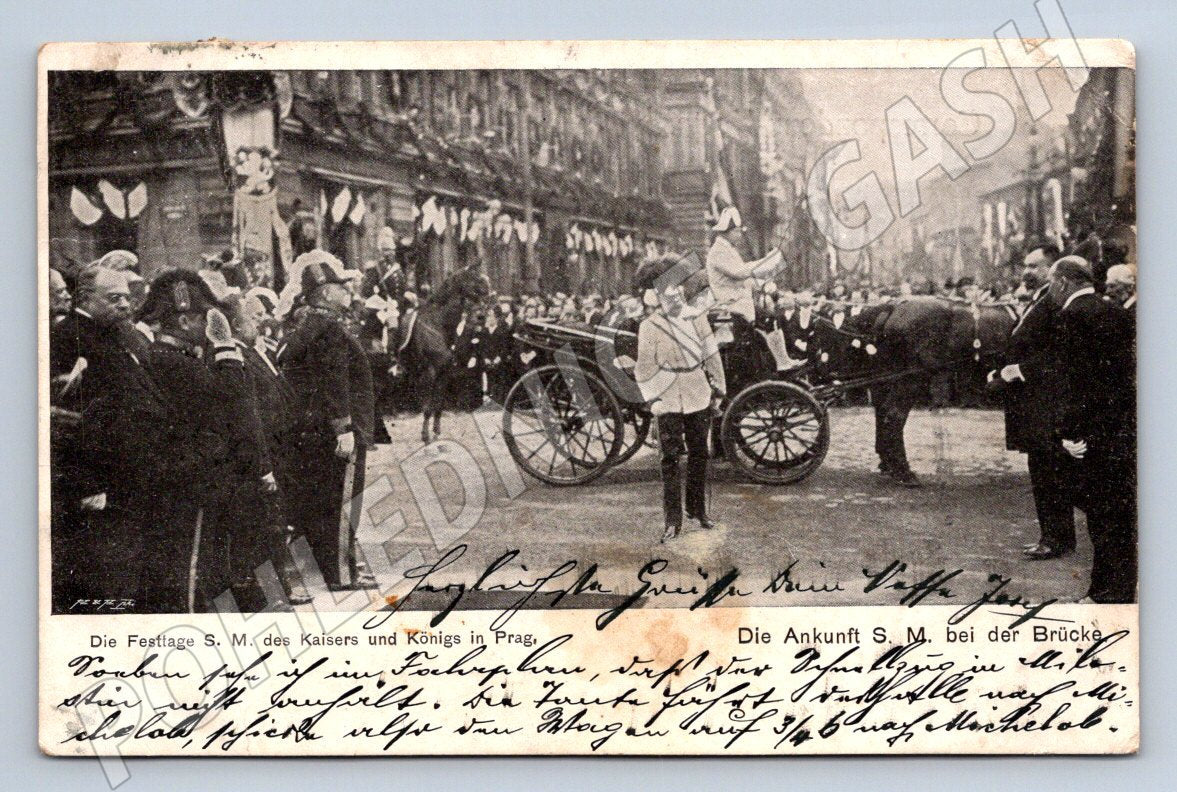 POHLEDNICE GASH
Herzlichste Grüsse Dein Neffe Josef
Die Festtage S. M. des Kaisers und Königs in Prag.
Die Ankunft S. M. bei der Brücke
Soeben sehe ich im Fahrplan, dass der Schnellzug in Milo-
stin nicht anhält. Die Tante fährt deshalb nach Mi-
chelob, schicke also den Wagen auf 3/4 6 nach Michelob.